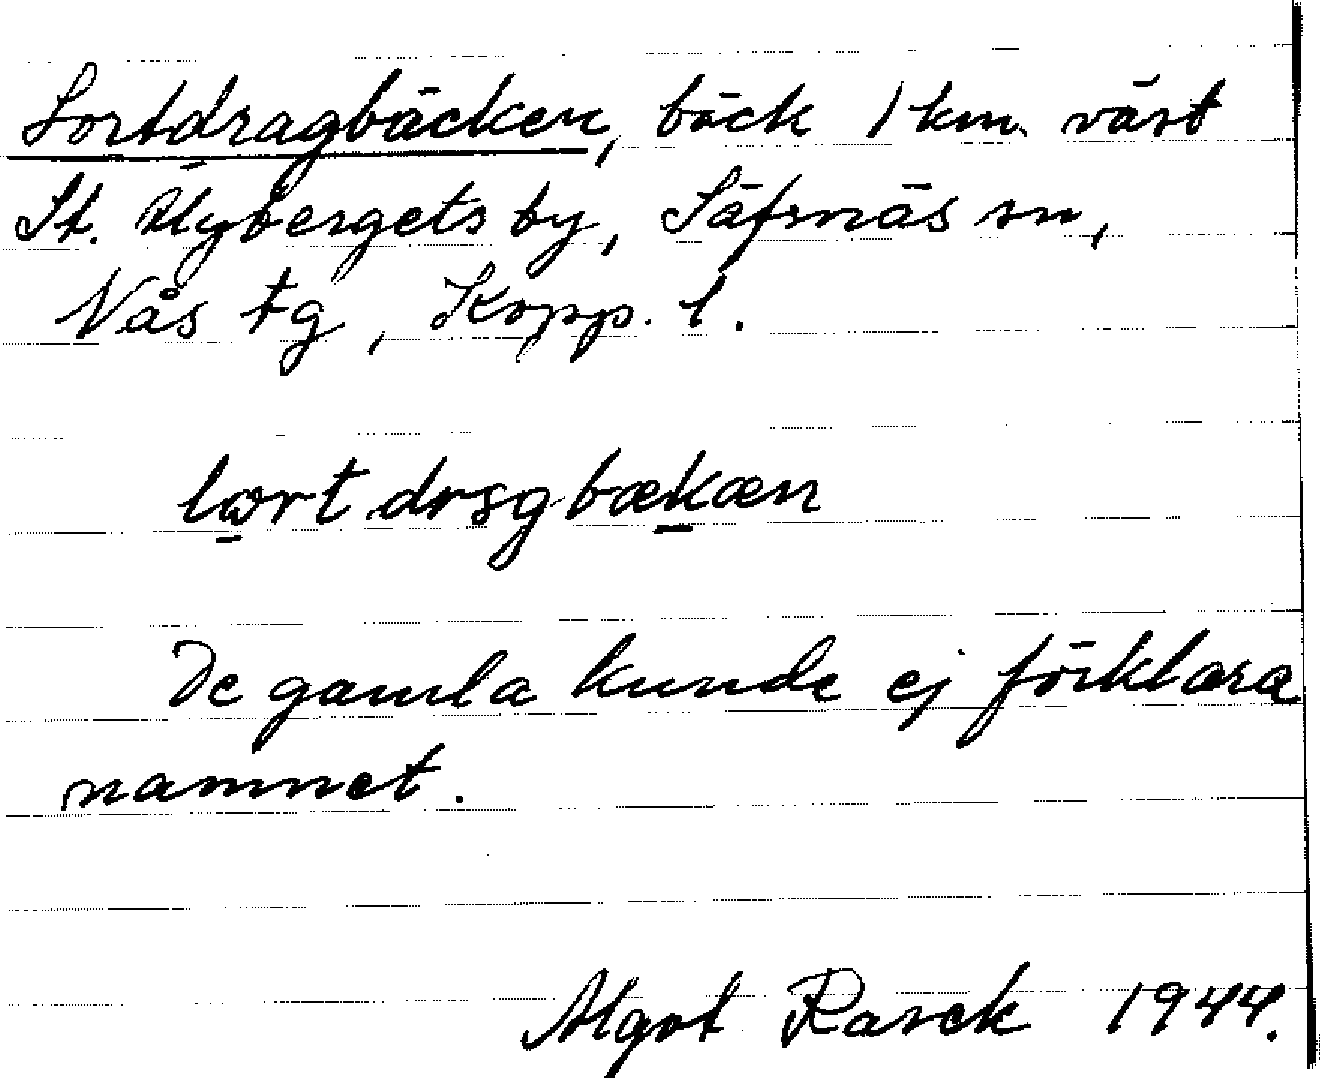 Lortdragbäcken, bäck 1 km väst
St. Uybergets by, Säfsnäs sn,
Nås tg, Kopp. l.
lørt drsgbækæn
De gamla kunde ej förklara
namnet.
Algot Rasck 1944.